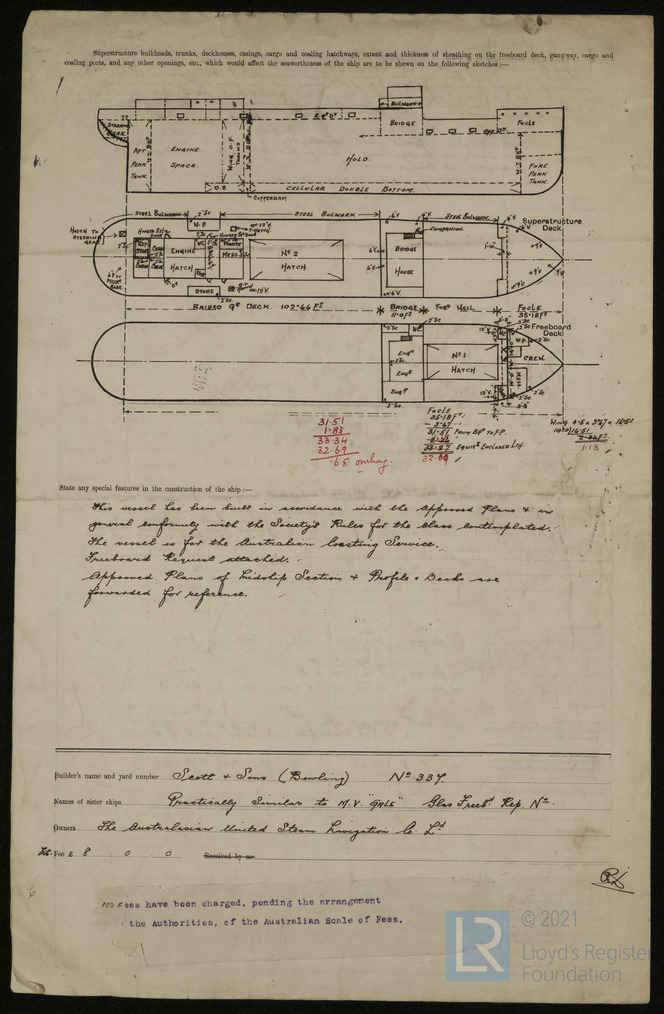 Superstructure bulkheads, trunks, deckhouses, casings, cargo and coaling hatchways, extent and thickness of sheathing on the freeboard deck, gangway, cargo and
coaling ports, and any other openings, etc., which would affect the seaworthiness of the ship are to be shewn on the following sketches :—
BULWARK
BRIDGE
FOCLE
STEERING
GEAR
AFT
PEAK
TANK
ENGINE
SPACE.
HOLD.
FORE
PEAK
TANK.
D.B.
CELLULAR DOUBLE BOTTOM.
COFFERDAM
STEEL BULWARK
STEEL BULWARK
STEEL BULWARK
Superstructure
Deck
HATCH TO
STEERING
GEAR.
COMPANION.
ENGINE
HATCH
MESS
Nº 2
HATCH
BRIDGE
HOUSE
STORE
RAISED Qº DECK. 102·66 FT
BRIDGE
11·0 FT
FORD WELL
FOCLE.
35·18 FT
Freeboard
Deck
ENGR
ENGR
ENGR
Nº 1
HATCH
CREW.
MESS
31.51
1.83
33.34
32.69
.65 overhang.
FOCLE
35·18 FT
3·67
31·51 FROM BHD TO F.P.
EQUIVT ENCLOSED LTH.
1.13
State any special features in the construction of the ship :—
This vessel has been built in accordance with the Approved Plans & in
general conformity with the Society's Rules for the Class contemplated.
The vessel is for the Australian Coasting Service.
Freeboard Request attached.
Approved Plans of Midship Section & Profile & Decks are
forwarded for reference.
Builder's name and yard number Scott & Sons (Bowling) Nº 337.
Names of sister ships Practically Similar to M.V. "GALE" Glas Freebd Rep. Nº
Owners The Australasian United Steam Navigation Co. Ld
Fee £ 8 0 0 Received by me
No Fees have been charged, pending the arrangement
the Authorities, of the Australian Scale of Fees.
LR
© 2021
Lloyd's Register
Foundation